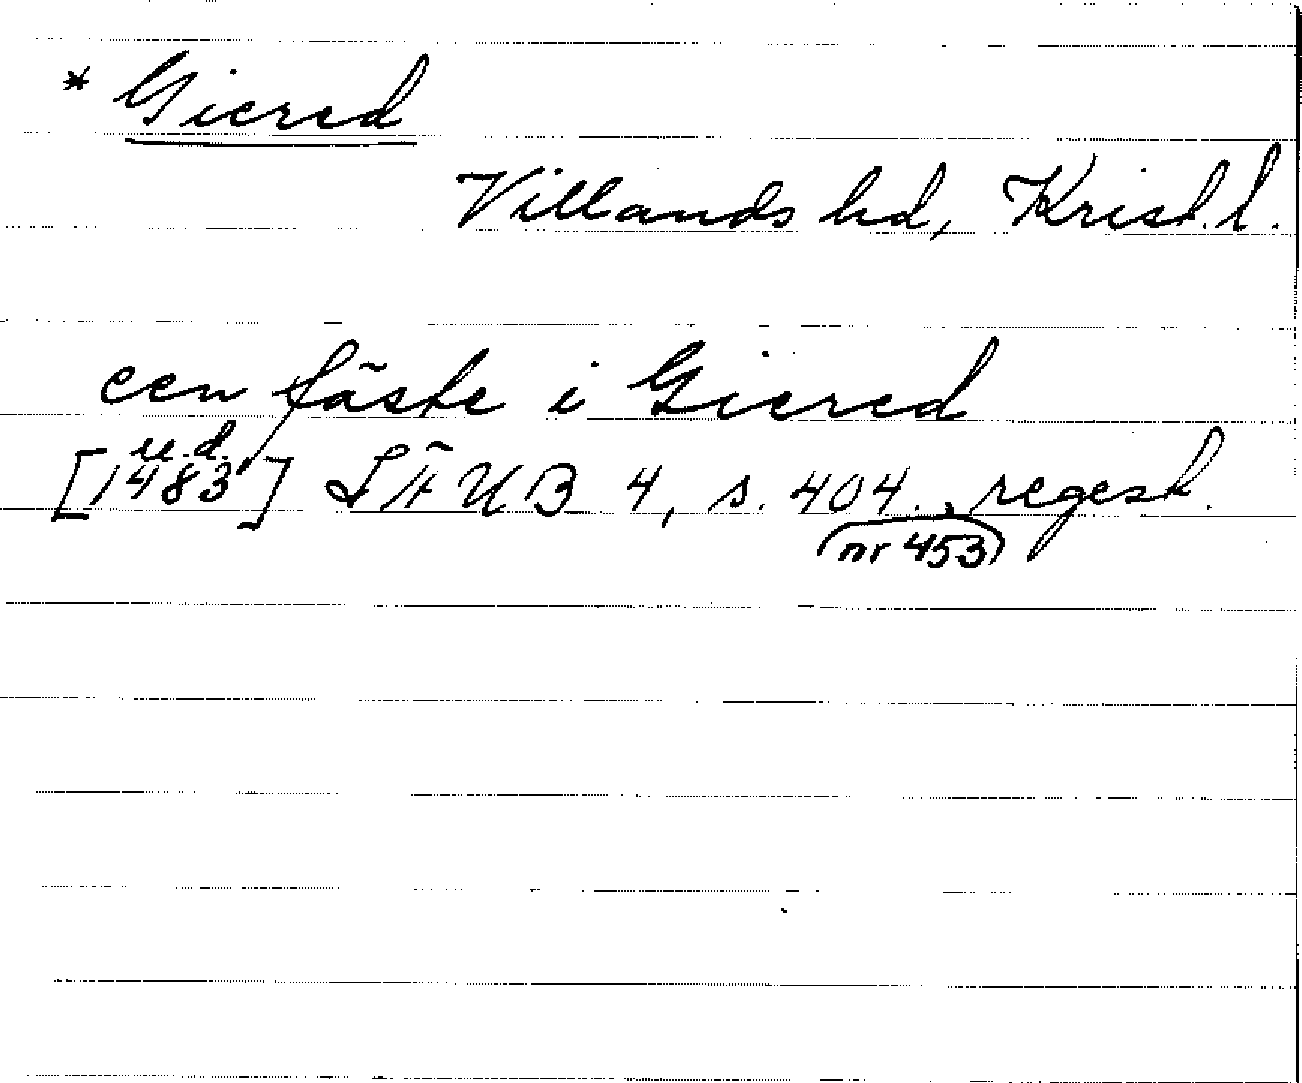 * Giered
Villands hd, Krist. l.
een fäste i Giered
u.d.
[1483] LÄUB 4, s. 404., regest.
(nr 453)